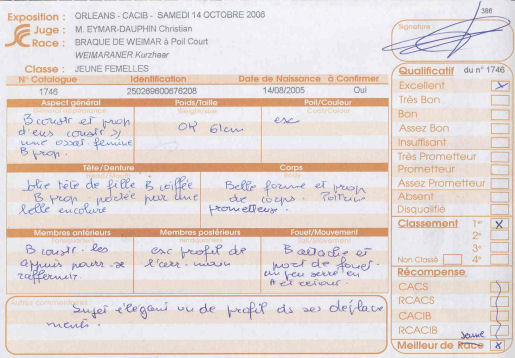 386
Exposition : ORLEANS - CACIB - SAMEDI 14 OCTOBRE 2006
Juge : M. EYMAR-DAUPHIN Christian
Race : BRAQUE DE WEIMAR à Poil Court
WEIMARANER Kurzhaar
Classe : JEUNE FEMELLES
Signature :
N° Catalogue Identification Date de Naissance à Confirmer
1746 250269600676208 14/08/2005 Oui
Aspect général Poids/Taille Poil/Couleur
B constr et prop
d'ens constr
une osat. femine
B prop.
OK 61cm
exc
Tête/Denture Corps
Jolie tête de fille B coiffée
B prop portée par une
belle encolure
Belle forme et prop
de corps. Poitrine
prometteuse.
Membres antérieurs Membres postérieurs Fouet/Mouvement
B constr. les
appuis pourr. se
raffermir
exc profil de
l'arr. main
B attaché et
port de fouet.
un peu serré en
A et retour.
Autres commentaires :
Sujet élégant vu de profil ds ses déplace
ments.
Qualificatif du n° 1746
Excellent X
Très Bon
Bon
Assez Bon
Insuffisant
Très Prometteur
Prometteur
Assez Prometteur
Absent
Disqualifié
Classement 1er X
2e
3e
Non Classé 4e
Récompense
CACS
RCACS
CACIB
RCACIB
Jeune
Meilleur de Race X